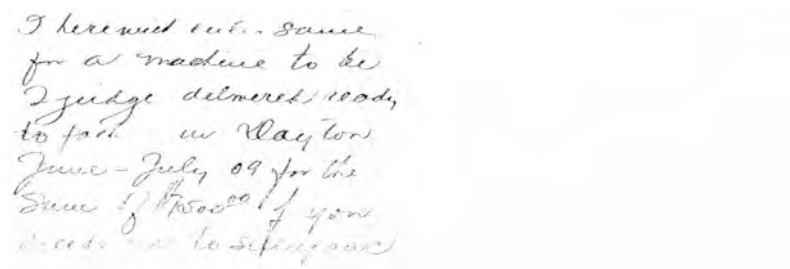 I herewith sub. same
for a machine to be
I judge delivered ready
to in Dayton
June - July 09 for the
Sum of $7500.00 if you
decide to